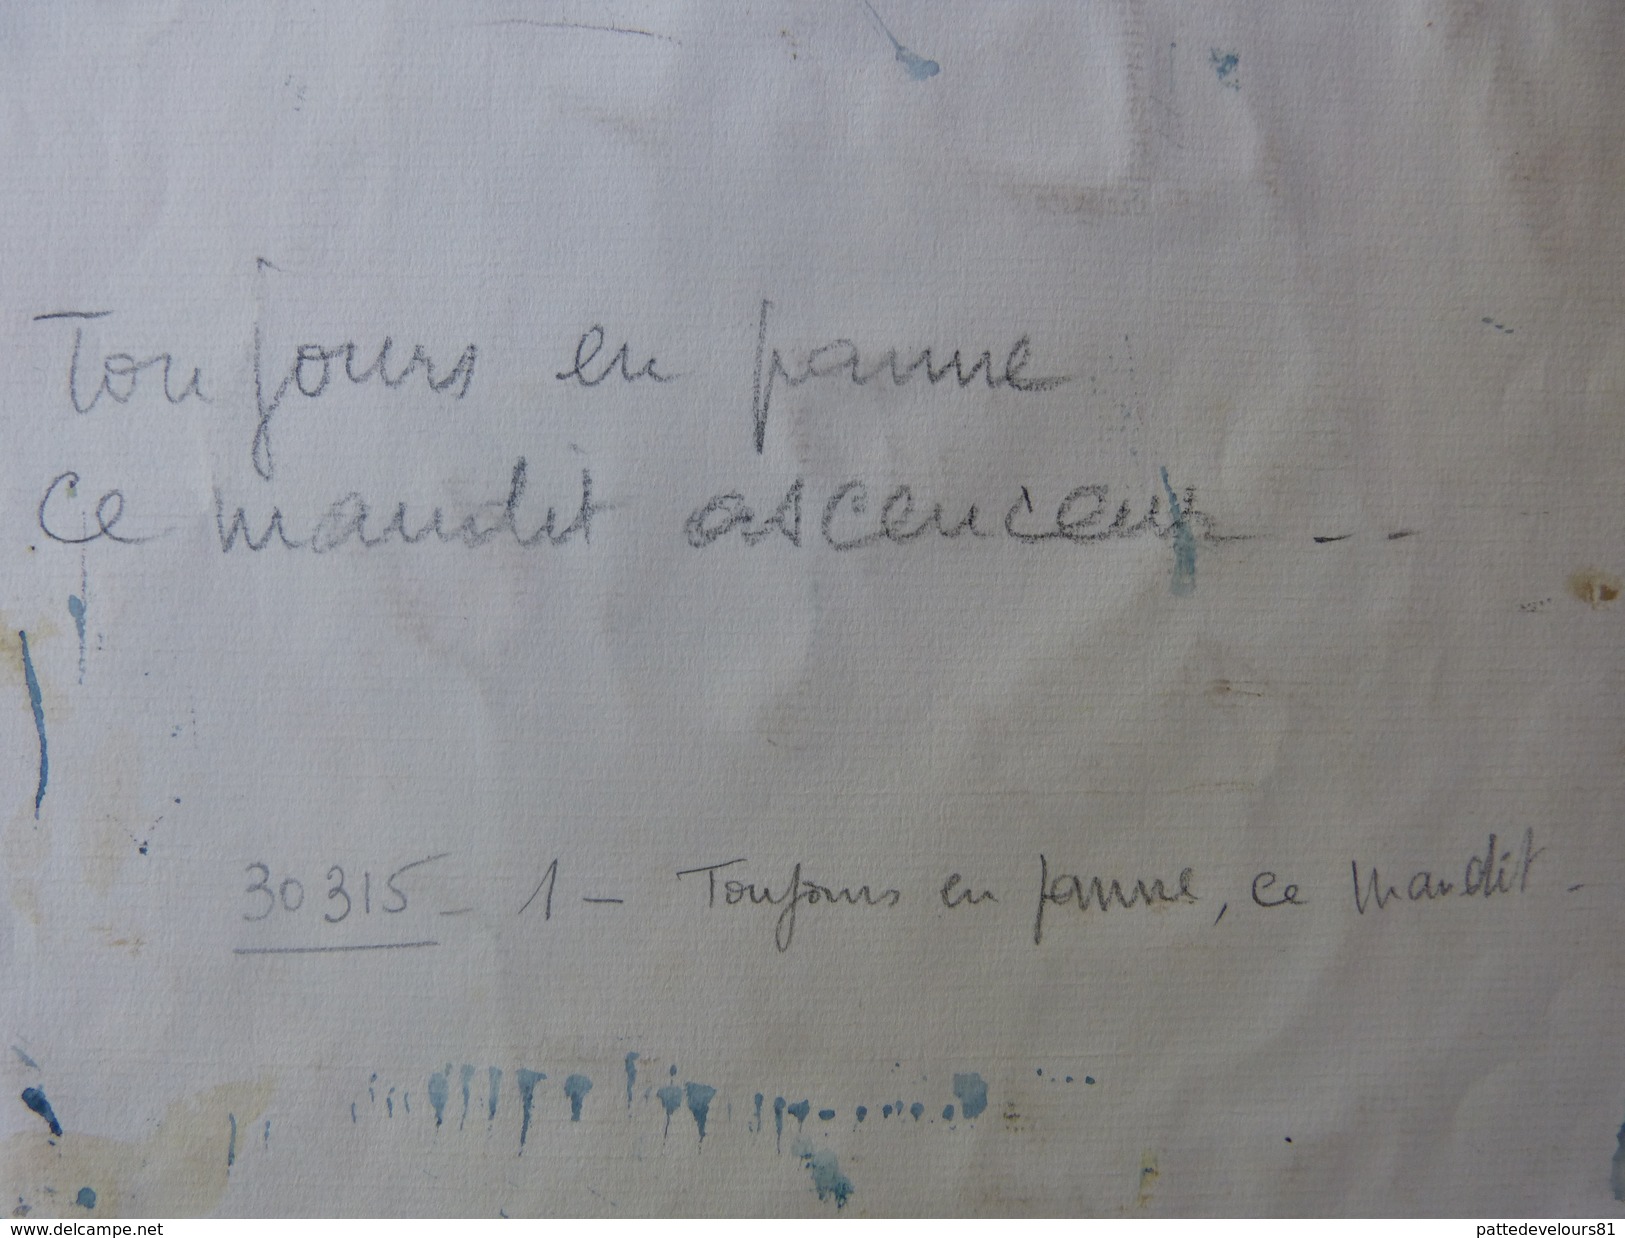 Toujours en panne
ce maudit ascenceur --
30315 - 1 - Toujours en panne, ce maudit -
www.delcampe.net
pattedevelours81